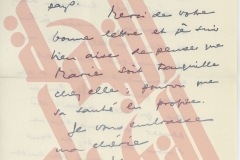 pays. Merci de votre
bonne lettre et je suis
bien aise de penser que
Marie soit tranquille
chez elle ; pourvu que
sa santé en profite.
Je vous embrasse
ma chérie